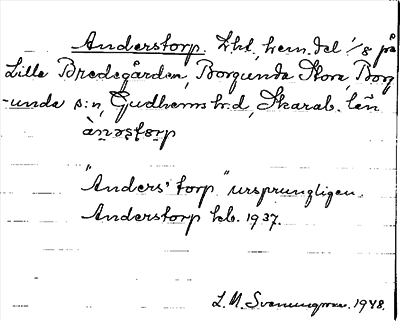 Anderstorp. Lht, hem.del 1/8 på
Lilla Bredegården, Borgunda Stora, Borg
-unda s:n, Gudhems h:d, Skarab. län
"Anders' torp" ursprungligen.
Anderstorp kb. 1937.
1948.